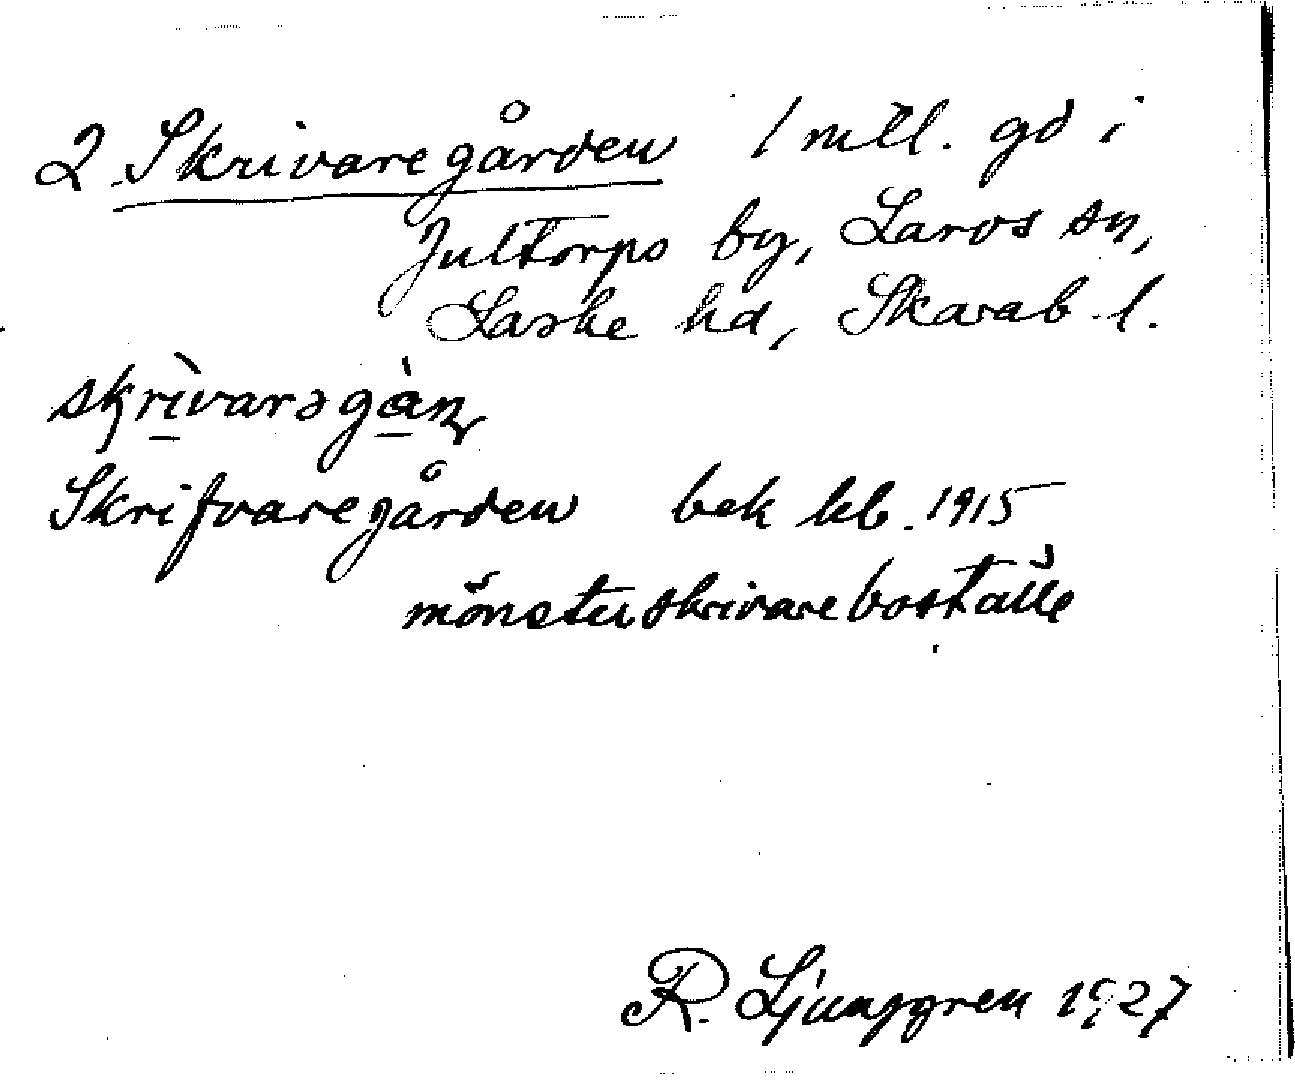 2. Skrivaregården 1 mtl. gd i
Jultorps by, Larvs sn,
Laske hd, Skarab. l.
skrìvarəgàn
Skrifvaregården bek kb. 1915
mönsterskrivareboställe
R. Ljunggren 1927